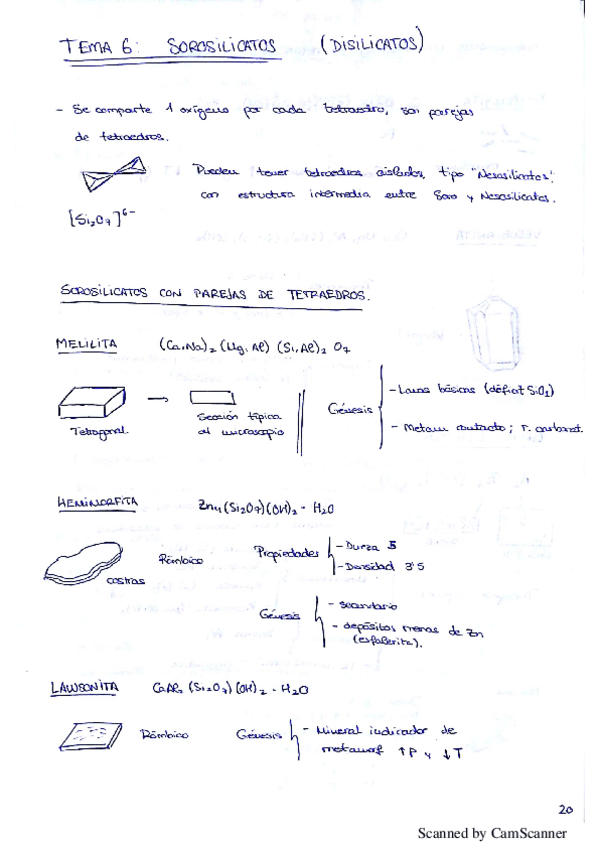 TEMA 6: SOROSILICATOS (DISILICATOS)
- Se comparte 1 oxígeno por cada tetraedro, son parejas
de tetraedros.
Pueden tener tetraedros aislados, tipo "Nesosilicatos",
con estructura intermedia entre Soro y Nesosilicatos.
[Si2O7]6-
SOROSILICATOS CON PAREJAS DE TETRAEDROS.
MELILITA (Ca,Na)2 (Mg,Al) (Si,Al)2 O7
Tetragonal.
Sección típica
al microscopio
Génesis
- Lavas básicas (déficit SiO2)
- Metam contacto; r. carbonat.
HEMIMORFITA Zn4 (Si2O7)(OH)2 · H2O
costras
Rómbico
Propiedades
- Dureza 5
- Densidad 3'5
Génesis
- secundario
- depósitos menas de Zn
(esfalerita).
LAWSONITA CaAl2 (Si2O7)(OH)2 · H2O
Rómbico
Génesis
- Mineral indicador de
metamorf ↑P y ↓T
20
Scanned by CamScanner